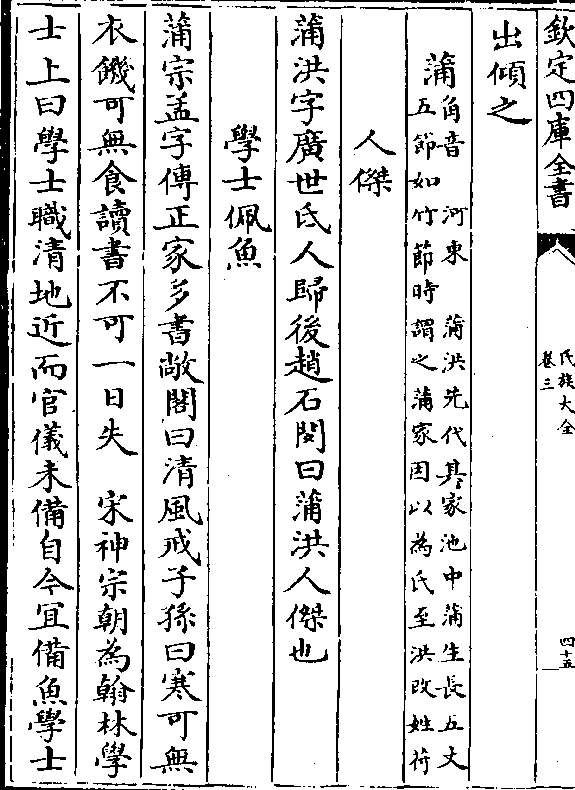 欽定四庫全書
氏族大全
卷三
四十五
出傾之
蒲
角音 河東 蒲洪先代其家池中蒲生長五丈
五節如竹節時謂之蒲家因以為氏至洪改姓苻
人傑
蒲洪字廣世氐人歸後趙石閔曰蒲洪人傑也
學士佩魚
蒲宗孟字傳正家多書敞閣曰清風戒子孫曰寒可無
衣饑可無食讀書不可一日失 宋神宗朝為翰林學
士上曰學士職清地近而官儀未備自今宜備魚學士